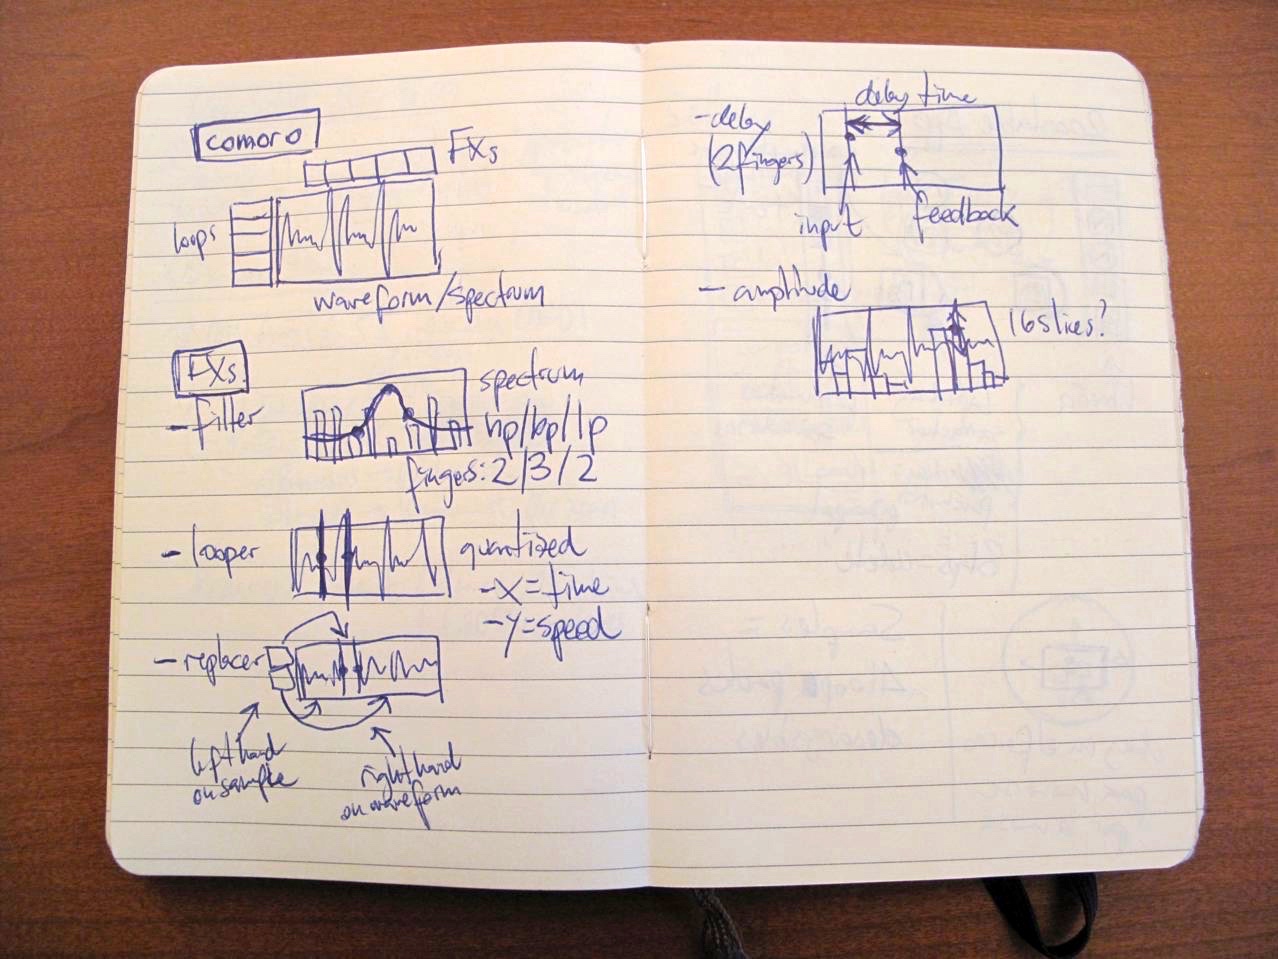 comoro
FXs
loops
waveform/spectrum
FXs
- filter
spectrum
hp/bp/lp
fingers: 2/3/2
- looper
quantized
- X = time
- Y = speed
- replacer
left hand
on sample
right hand
on waveform
- delay
(2 fingers)
delay time
input
feedback
- amplitude
16 slices?